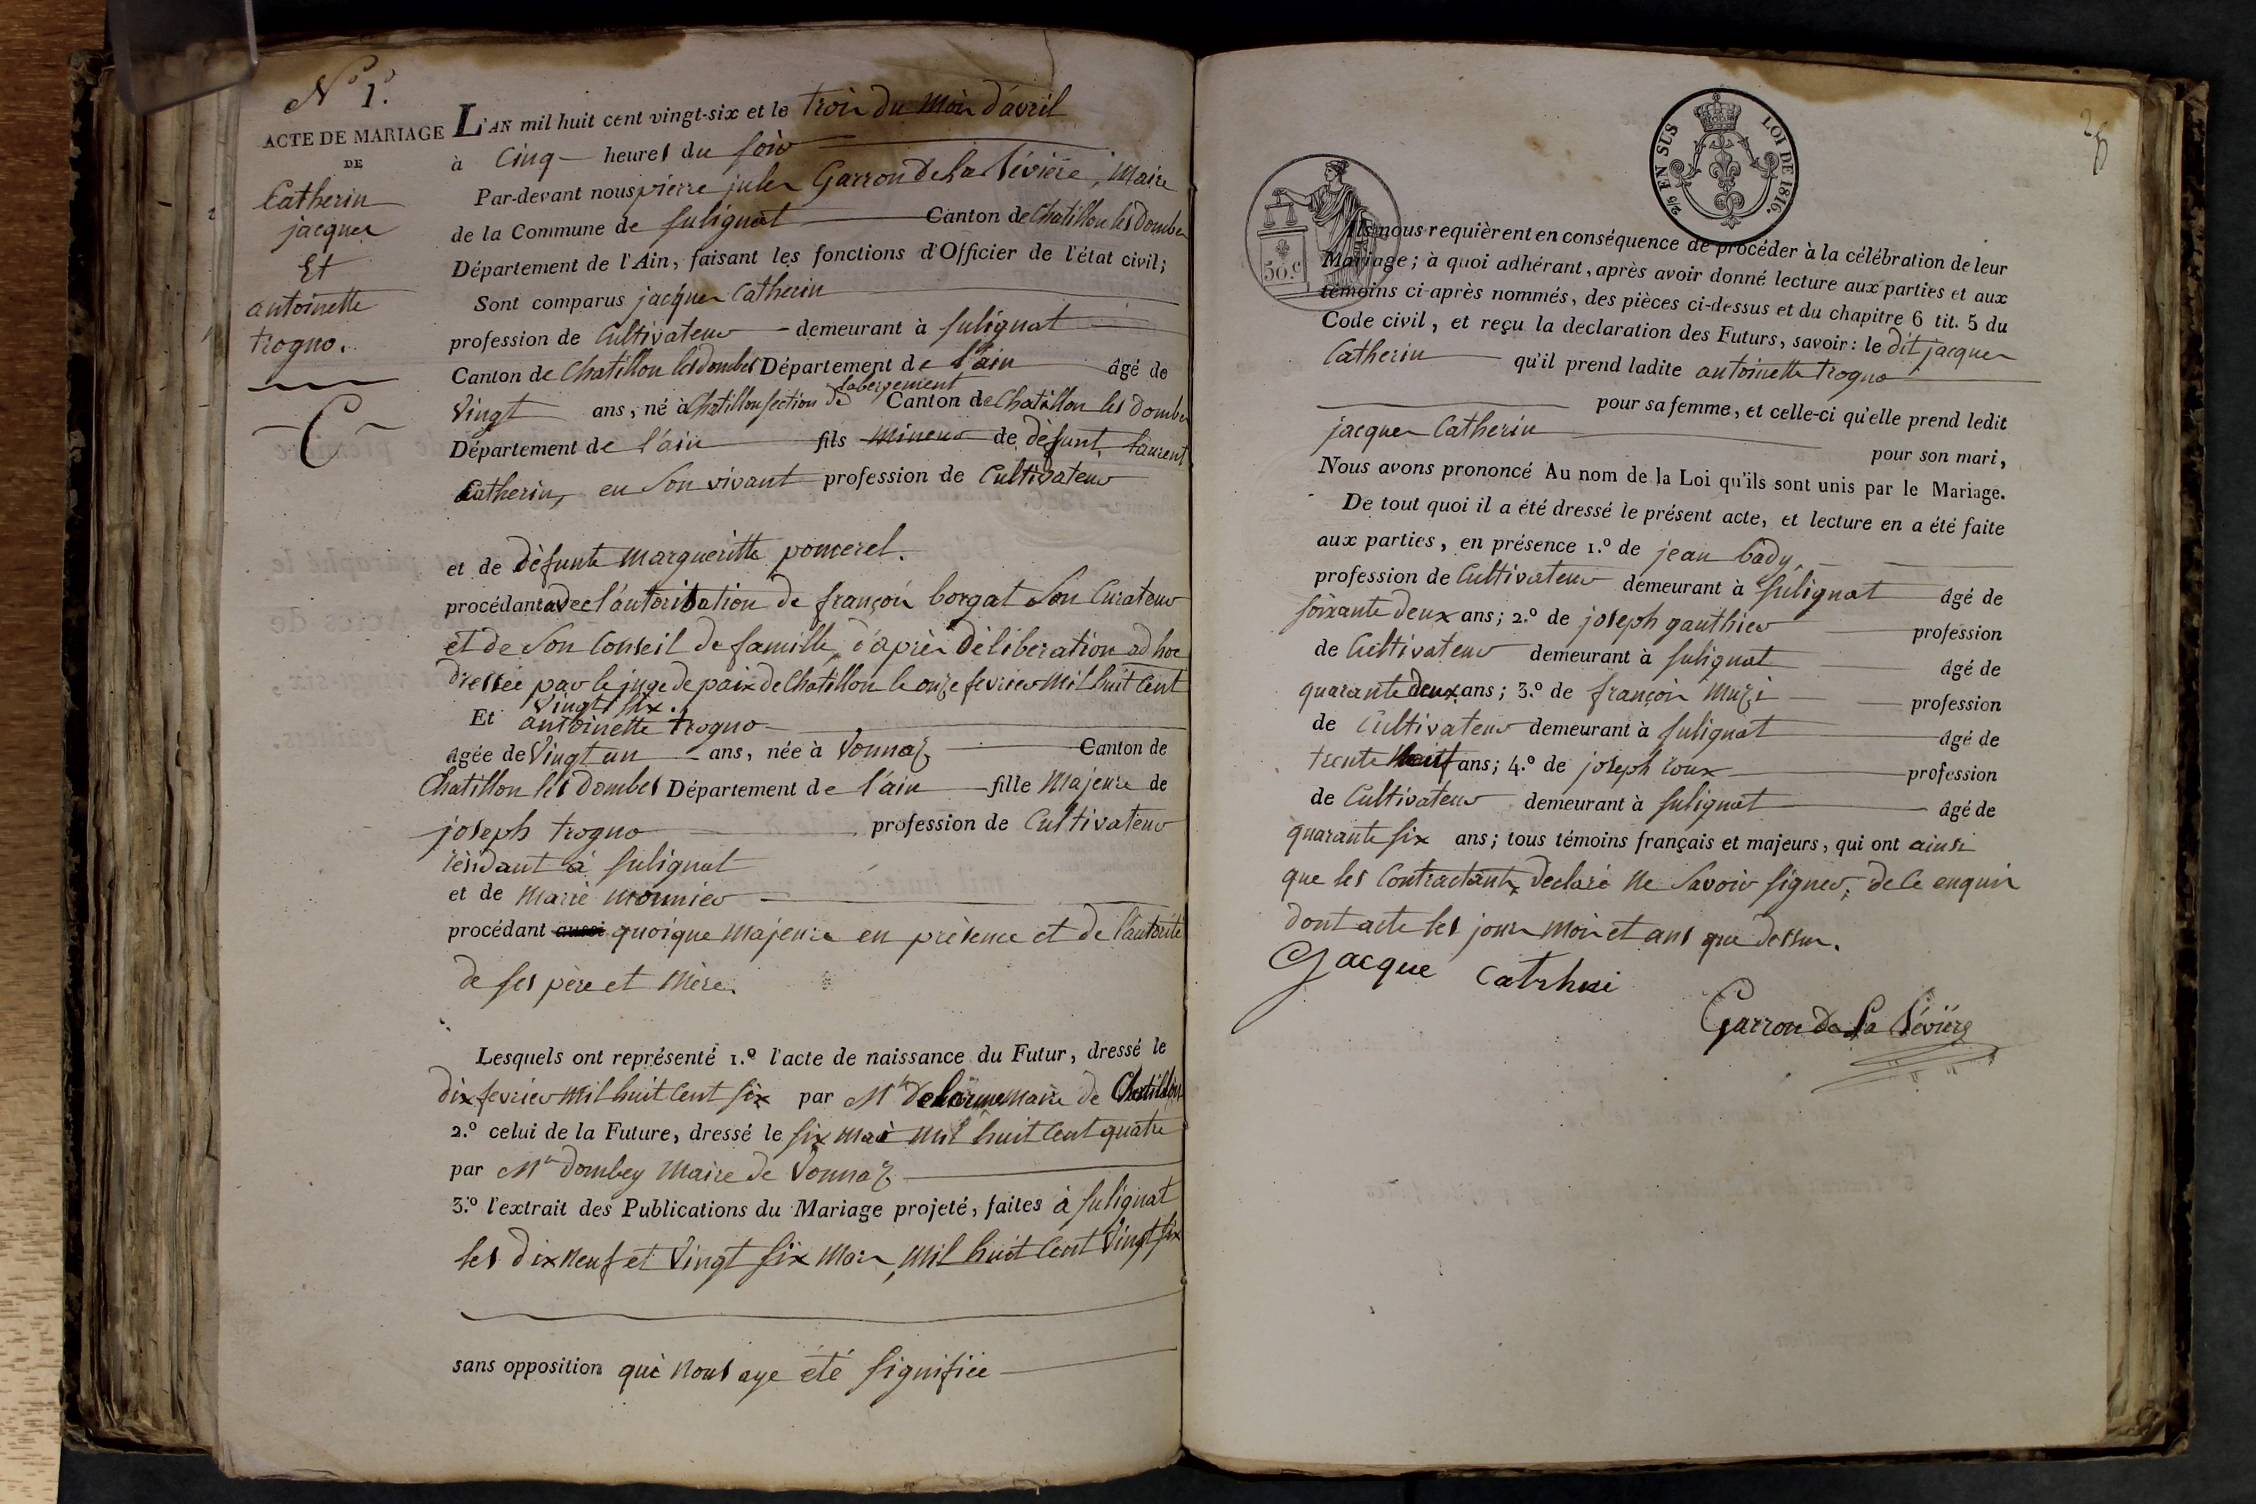 N° 1.°
ACTE DE MARIAGE
DE
Catherin
jacques
Et
antoinette
trogno.
L'AN mil huit cent vingt-six et le trois du mois d'avril
à Cinq heures du soir
Par-devant nous pierre jules Garron De La Sévière, Maire
de la Commune de sulignat Canton de Chatillon les Dombes
Département de l'Ain, faisant les fonctions d'Officier de l'état civil;
Sont comparus jacques Catherin
profession de Cultivateur demeurant à sulignat
Canton de Chatillon les dombes Département de l'ain âgé de
labergement
Vingt ans, né à Chatillon section de Canton de Chatillon les dombes
Département de l'ain fils Mineur de défunt Laurent
Catherin, en son vivant profession de Cultivateur
et de défunte margueritte pomerel.
procédant avec l'autorisation de françois borgat son Curateur
et de son Conseil de famille, d'après déliberation ad hoc
dressée par le juge de paix de Chatillon le onze fevrier mil huit Cent
vingt six.
Et antoinette trogno
âgée de Vingt un ans, née à Vonnaz Canton de
Chatillon les Dombes Département de l'ain fille Majeure de
joseph trogno profession de Cultivateur
résidant à sulignat
et de marie monnier
procédant aussi quoique majeure en présence et de l'autorité
de ses père et Mère.
Lesquels ont représenté 1.° l'acte de naissance du Futur, dressé le
dix fevrier mil huit Cent six par Mr Delorme Maire de Chatillon
2.° celui de la Future, dressé le six mai mil huit Cent quatre
par Mr Dombey Maire de Vonnaz
3.° l'extrait des Publications du Mariage projeté, faites à sulignat
les dix neuf et Vingt six Mars, mil huit Cent Vingt six
sans opposition qui nous aye été signifiée
2/5 EN SUS
LOI DE 1816.
50.c
Ils nous requièrent en conséquence de procéder à la célébration de leur
Mariage; à quoi adhérant, après avoir donné lecture aux parties et aux
témoins ci-après nommés, des pièces ci-dessus et du chapitre 6 tit. 5 du
Code civil, et reçu la declaration des Futurs, savoir: le dit jacques
Catherin qu'il prend ladite antoinette trogno
pour sa femme, et celle-ci qu'elle prend ledit
jacques Catherin
pour son mari,
Nous avons prononcé Au nom de la Loi qu'ils sont unis par le Mariage.
De tout quoi il a été dressé le présent acte, et lecture en a été faite
aux parties, en présence 1.° de jean bady,
profession de Cultivateur demeurant à sulignat âgé de
soixante deux ans; 2.° de joseph gauthier profession
de Cultivateur demeurant à sulignat âgé de
quarante deux ans; 3.° de françois muzi profession
de Cultivateur demeurant à sulignat âgé de
trente ans; 4.° de joseph roux profession
de Cultivateur demeurant à sulignat âgé de
quarante six ans; tous témoins français et majeurs, qui ont ainsi
que les Contractants declaré ne savoir signer, de Ce enquis
dont acte les jour mois et ans que dessus.
Jacque catrhni
Garron De La Sévière